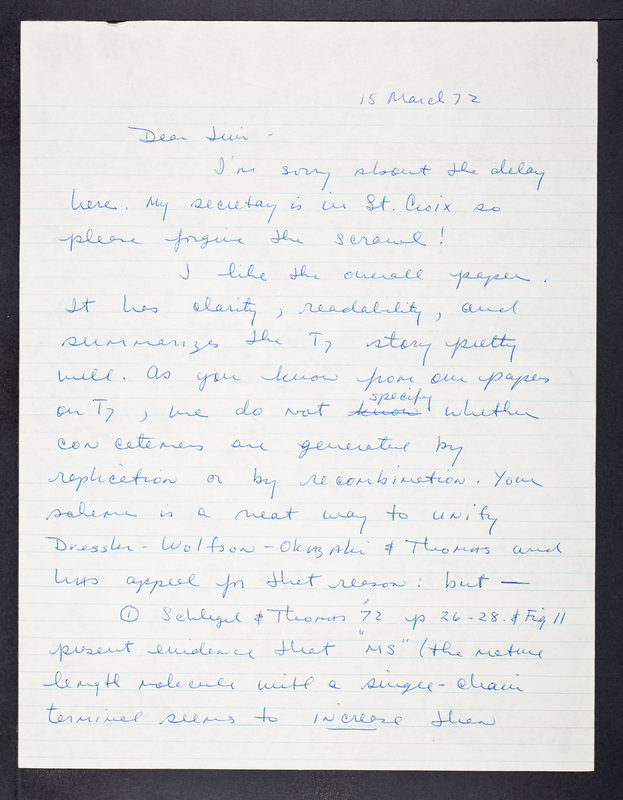 15 March 72
Dear Jim -
I'm sorry about the delay
here. My secretay is in St. Croix so
please forgive the scrawl!
I like the overall paper.
It has clarity, readability, and
summarizes the T7 story pretty
well. As you know from our papers
on T7, we do not know specify whether
concatemers are generated by
replication or by recombination. Your
scheme is a neat way to unify
Dressler-Wolfson-Okazaki & Thomas and
has appeal for that reason: but —
① Schlegel & Thomas '72 p 26-28. & Fig 11
present evidence that "MS" (the mature
length molecule with a single-chain
terminal seems to increase then